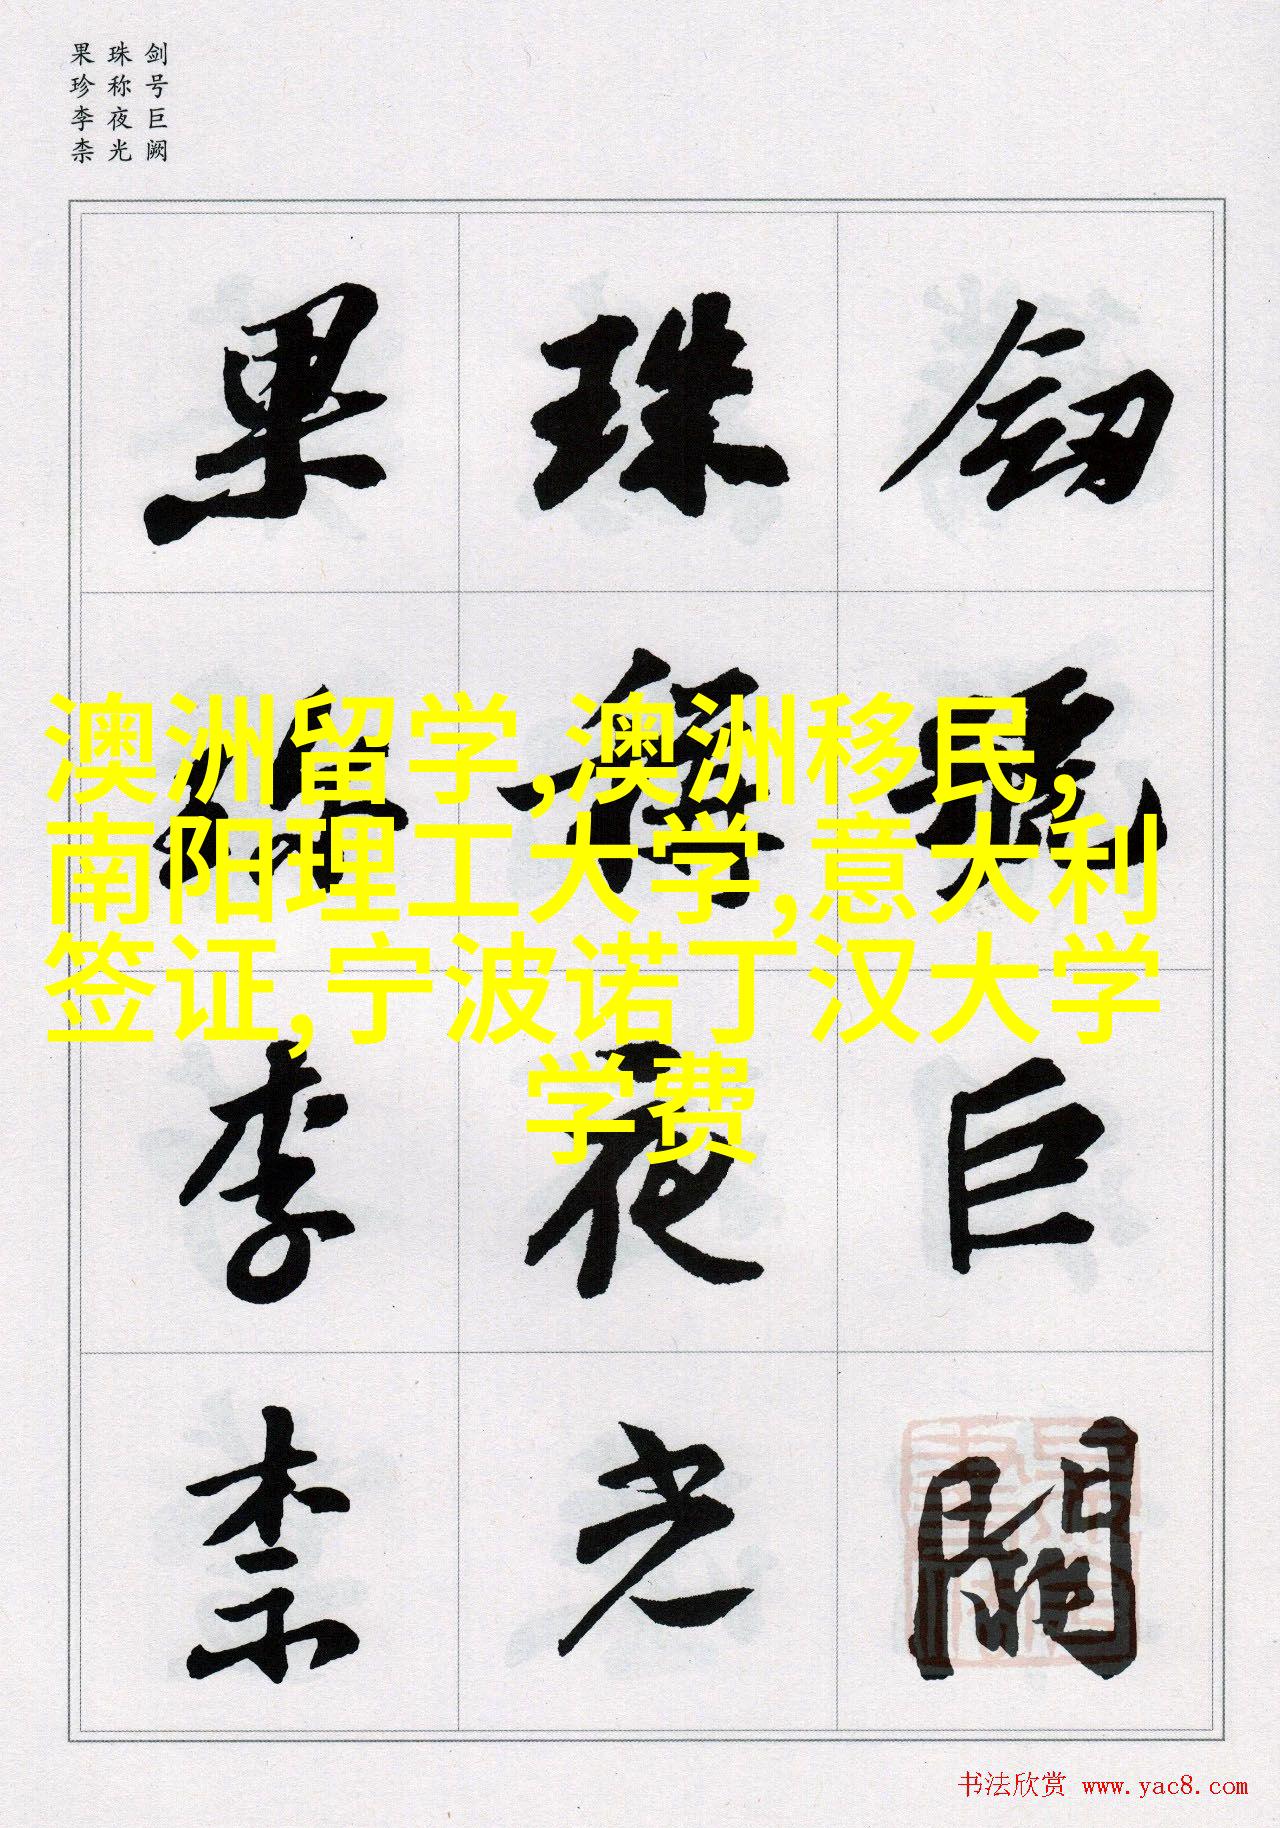 剑号巨阙
珠称夜光
果珍李柰
劍號巨闕
珠稱夜光
果珍李柰
澳洲留学,澳洲移民,
南阳理工大学,意大利
签证,宁波诺丁汉大学
学费
书法欣赏 www.yac8.com